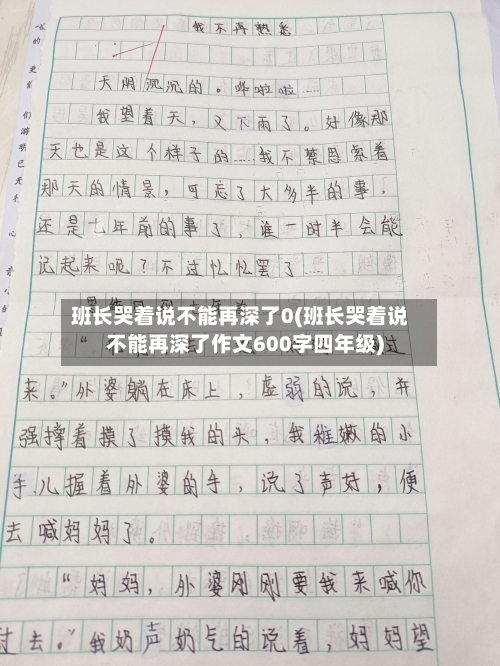 我不再熟悉
天阴沉沉的。哗啦啦……
我望着天，又下雨了。好像那
天也是这个样子的……我不禁思索着
那天的情景，可忘了大多半的事，
还是七年前的事了，谁一时半会能
记起来呢？不过忆忆罢了……
班长哭着说不能再深了0(班长哭着说
不能再深了作文600字四年级)
过
来。”外婆躺在床上，虚弱的说，并
强撑着摸了摸我的头，我稚嫩的小
手儿握着外婆的手，说了声好，便
去喊妈妈了。
“妈妈，外婆刚刚要我来喊你
过去。”我奶声奶气的说着，妈妈望